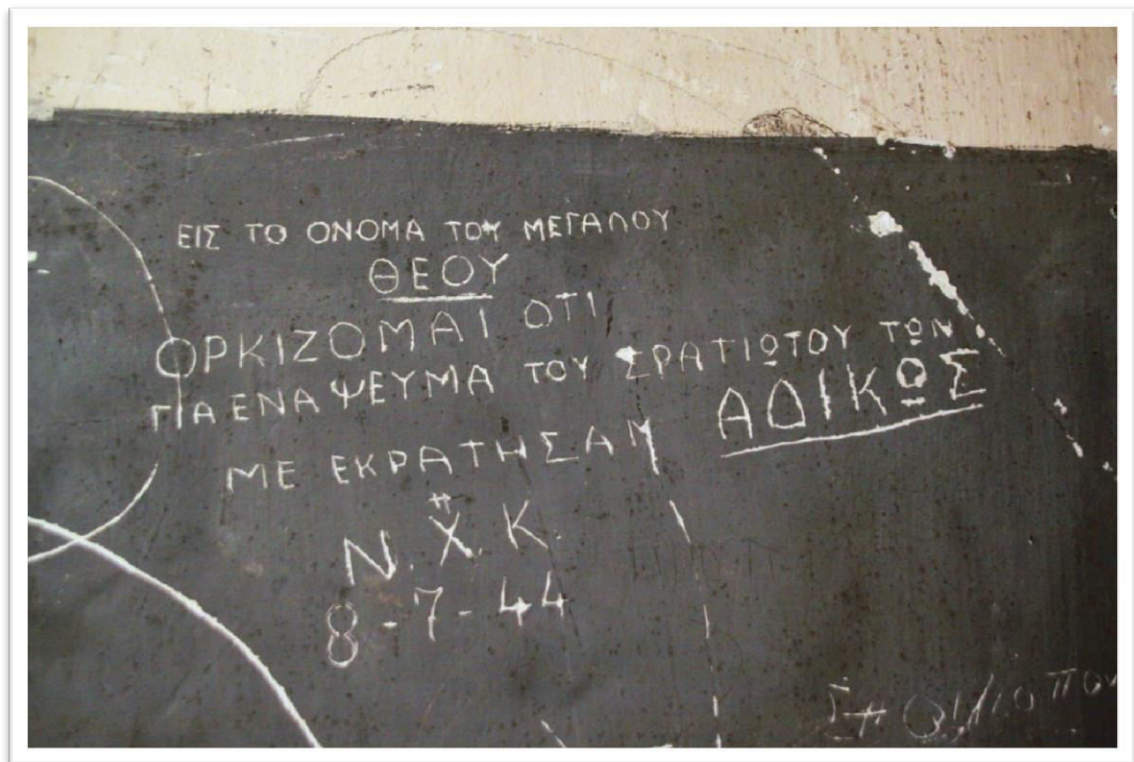 ΕΙΣ ΤΟ ΟΝΟΜΑ ΤΟΥ ΜΕΓΑΛΟΥ
ΘΕΟΥ
ΟΡΚΙΖΟΜΑΙ ΟΤΙ
ΓΙΑ ΕΝΑ ΨΕΥΜΑ ΤΟΥ ΣΡΑΤΙΩΤΟΥ ΤΩΝ
ΜΕ ΕΚΡΑΤΗΣΑΝ ΑΔΙΚΩΣ
Ν. Χ. Κ.
8-7-44